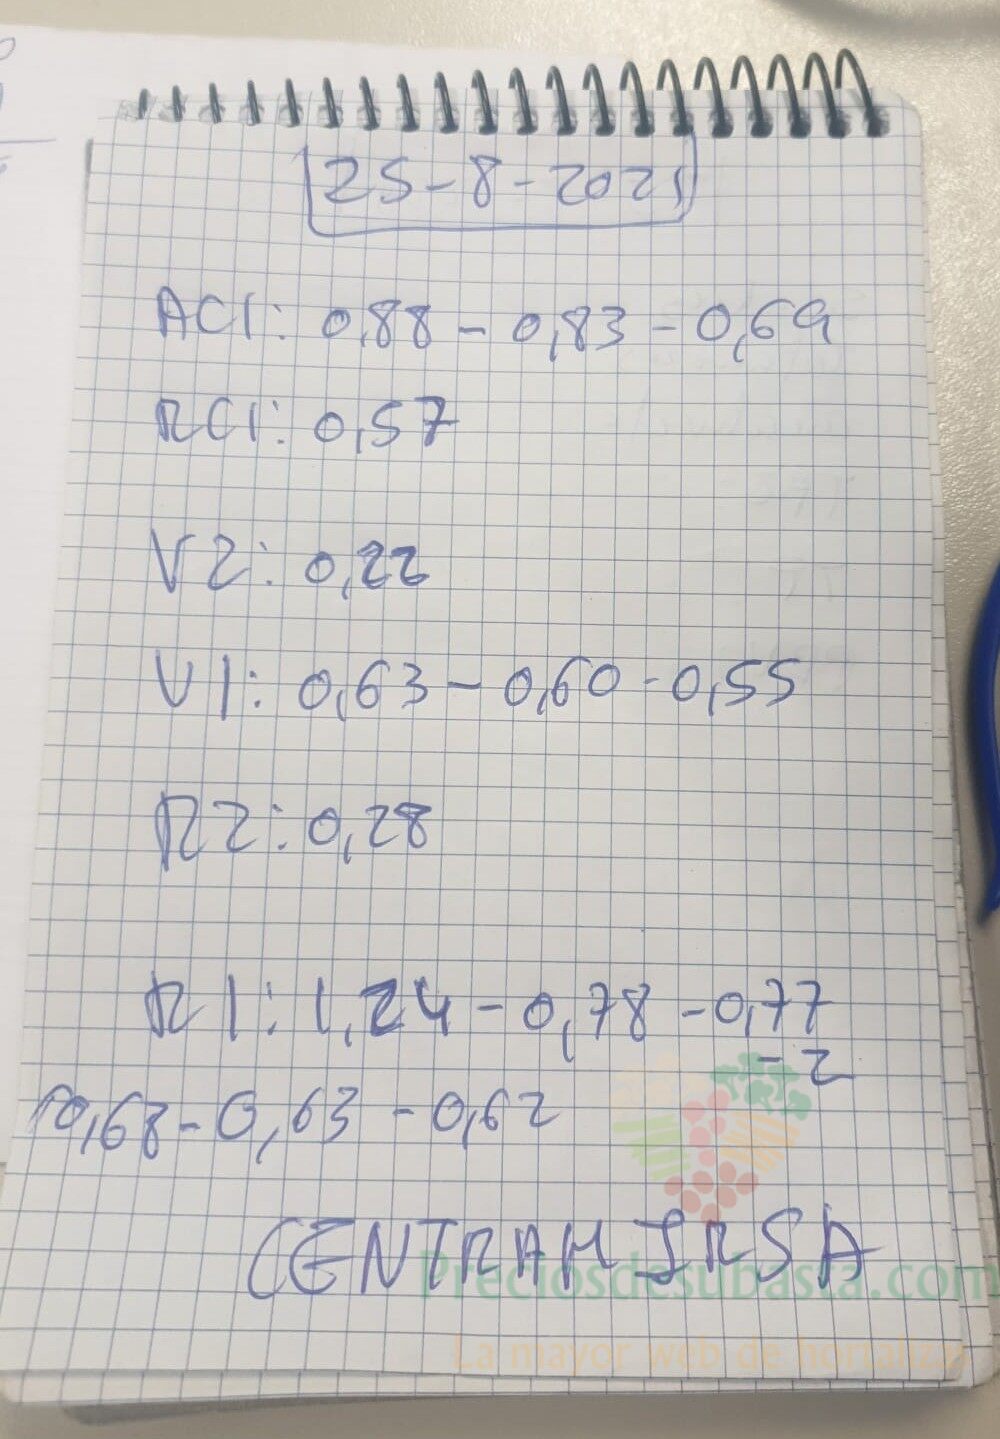 25-8-2021
AC1: 0,88 - 0,83 - 0,69
RC1: 0,57
V2: 0,22
V1: 0,63 - 0,60 - 0,55
R2: 0,28
R1: 1,24 - 0,78 - 0,77
- 2
0,68 - 0,63 - 0,62
CENTRAL IRSA
Preciosdesubasta.com
La mayor web de hortaliza